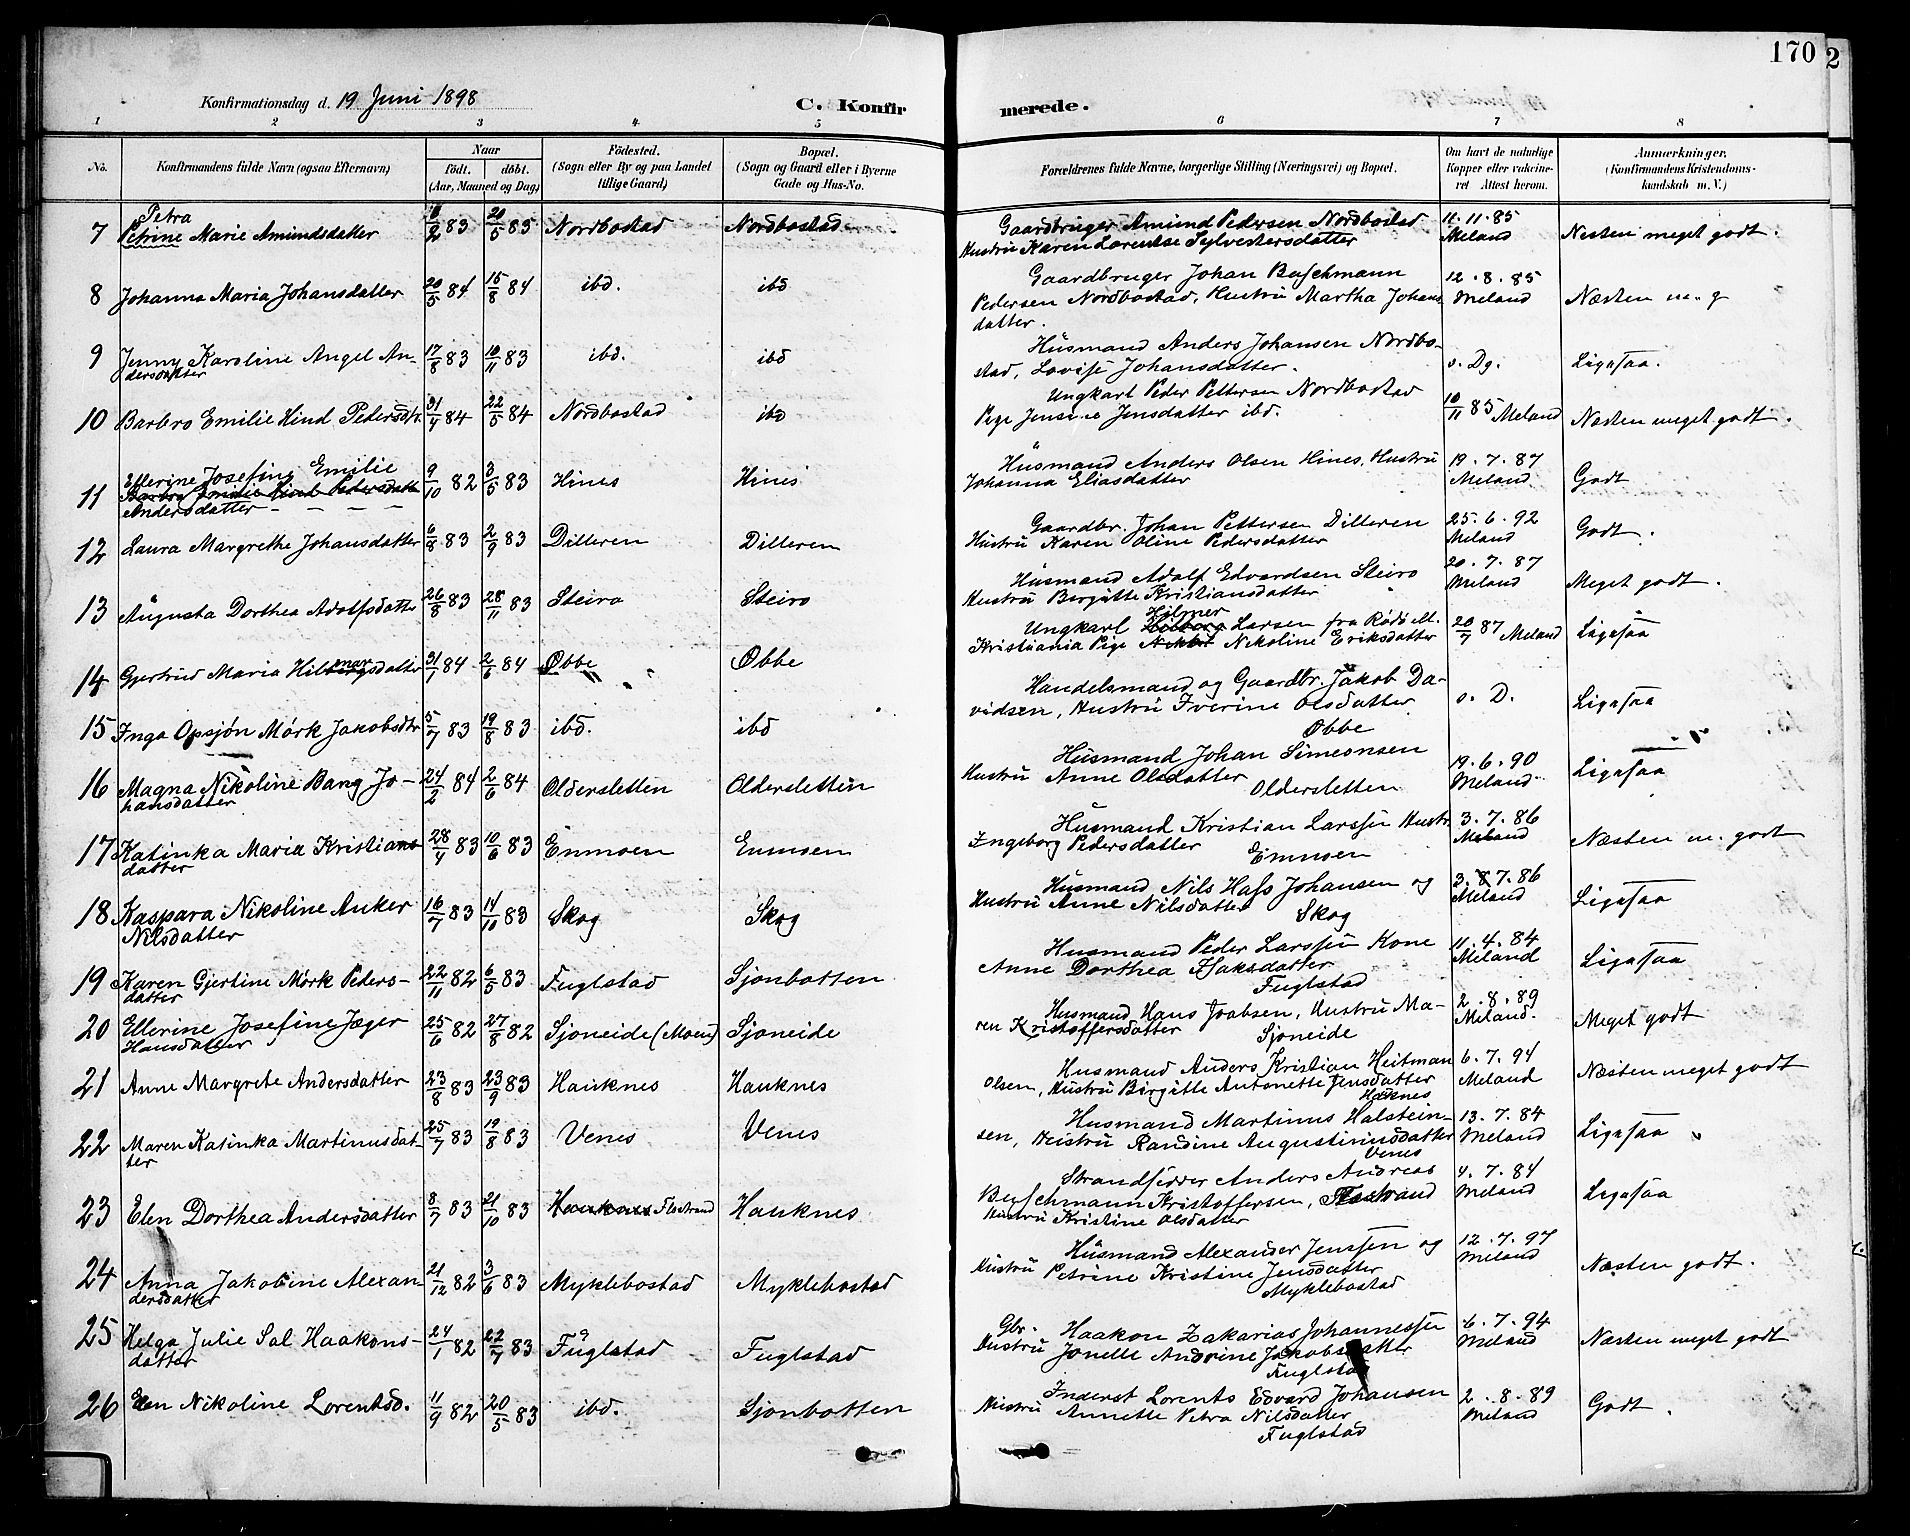 170
2
Konfirmationsdag d. 19 Juni 1898
C. Konfirmerede.
1 2 3 4 5 6 7 8
No. Konfirmandens fulde Navn (ogsaa Efternavn) Naar født. døbt. (Aar, Maaned og Dag) Fødested. (Sogn eller By og paa Landet tillige Gaard) Bopæl. (Sogn og Gaard eller i Byerne Gade og Hus-No. Forældrenes fulde Navne, borgerlige Stilling (Næringsvei) og Bopæl. Om havt de naturlige Kopper eller vakcineret Attest herom. Anmærkninger. (Konfirmandens Kristendomskundskab m. V.)
Petra
7 Petrine Marie Amundsdatter 6/2 83 20/5 83 Nordbostad Nordbostad Gaardbruger Amund Pedersen Nordbostad 11.11.85
Hustru Karen Lorentse Sylvestersdatter Meland Nesten meget godt.
8 Johanna Maria Johansdatter 20/5 84 15/8 84 ibd. ibd Gaardbruger Johan Buschmann 12.8.85
Pedersen Nordbostad, Hustru Martha Johans Meland Næsten m. g
datter.
9 Jenny Karoline Angel An- 17/8 83 10/11 83 ibd. ibd Husmand Anders Johansen Nordbo-
dersdatter stad, Lovise Johansdatter. s. Dg. Ligesaa.
10 Barbro Emilie Hind Pedersdtr. 31/4 84 22/5 84 Nordbostad ibd Ungkarl Peder Pettersen Nordbostad
Pige Jensine Jensdatter ibd. 10/11 85 Meland Næsten meget godt.
Ellerine Josefine Emilie
11 Barbro Emilie Hind Pedersdatter 9/10 82 3/5 83 Hines Hines Husmand Anders Olsen Hines, Hustru 19.7.87
Andersdatter Johanna Eliasdatter Meland Godt
12 Laura Margrethe Johansdatter 6/8 83 2/9 83 Dilleren Dilleren Gaardbr. Johan Pettersen Dilleren 25.6.92
Hustru Karen Oline Pedersdatter Meland Godt.
13 Augusta Dorthea Adolfsdatter 26/8 83 28/11 83 Steiro Steiro Husmand Adolf Edvardsen Steiro 20.7.87
Hustru Birgitte Kristiansdatter Meland Meget godt.
Hilmer
14 Gjertrud Maria Hilmarsdatter 31/1 84 2/6 84 Øbbe Øbbe Ungkarl Larsen fra Rødø elt. 20/7 87 Meland Ligesaa
Kristiania Pige Nikoline Eriksdatter
15 Inga Opsjøn Mørk Jakobsdtr 5/7 83 19/8 83 ibd. ibd Handelsmand og Gaardbr. Jakob Da-
vidsen, Hustru Iverine Olsdatter s. D. Ligesaa
Øbbe
16 Magna Nikoline Bang Jo- 24/2 84 2/6 84 Oldersletten Oldersletten Husmand Johan Simeonsen 19.6.90
hansdatter Hustru Anne Olsdatter Meland Ligesaa
Oldersletten
17 Katinka Maria Kristians 28/4 83 10/6 83 Enmoen Enmoen Husmand Kristian Larssen Hustr. 3.7.86
datter Ingeborg Pedersdatter Meland Næsten m. godt
Enmoen
18 Kaspara Nikoline Anker 16/7 83 14/10 83 Skog Skog Husmand Nils Hass Johansen og 3.7.86
Nilsdatter Hustru Anne Nilsdatter Meland Ligesaa
Skog
19 Karen Gjertine Mørk Peders- 22/11 82 6/5 83 Fuglstad Sjonbotten Husmand Peder Larssen Kone 11.4.84
datter Anne Dorthea Isaksdatter Meland Ligesaa
Fuglstad
20 Ellerine Josefine Jæger 25/6 82 27/8 82 Sjoneide (Moen) Sjoneide Husmand Hans Joabsen, Hustru Ma- 2.8.89
Hansdatter ren Kristoffersdatter Meland. Meget godt
Sjoneide
21 Anne Margrete Andersdatter 23/8 83 23/9 83 Hauknes Hauknes Husmand Anders Kristian Heitman 6.7.94
Olsen, Hustru Birgitte Antonette Jensdatter Meland Næsten meget godt
Hauknes
22 Maren Katinka Martinusdat- 25/7 83 19/8 83 Venes Venes Husmand Martinus Halstein- 13.7.84
ter sen, Hustru Randine Augustinusdatter Meland Ligesaa
Venes
23 Elen Dorthea Andersdatter 8/7 83 21/10 83 Hauknes Flostrand Hauknes Strandsidder Anders Andreas 4.7.84
Buschmann Kristoffersen, Flostrand Meland Ligesaa
Hustru Kristine Olsdatter
24 Anna Jakobine Alexan- 21/12 82 3/6 83 Myklebostad Myklebostad Husmand Alexander Jenssen og 12.7.97
dersdatter Hustru Petrine Kristine Jensdatter Meland Næsten godt.
Myklebostad
25 Helga Julie Sal Haakons- 24/1 82 22/7 83 Fuglstad Fuglstad Gbr. Haakon Zakarias Johannessen 6.7.94
datter Hustru Jonette Andrine Jakobsdatter Meland Næsten meget godt
Fuglstad
26 Elen Nikoline Lorentsd. 11/9 82 20/5 83 ibd. Sjonbotten Inderst Lorents Edvard Johansen 2.8.89
Hustru Annette Petra Nilsdatter Meland Godt.
Fuglstad